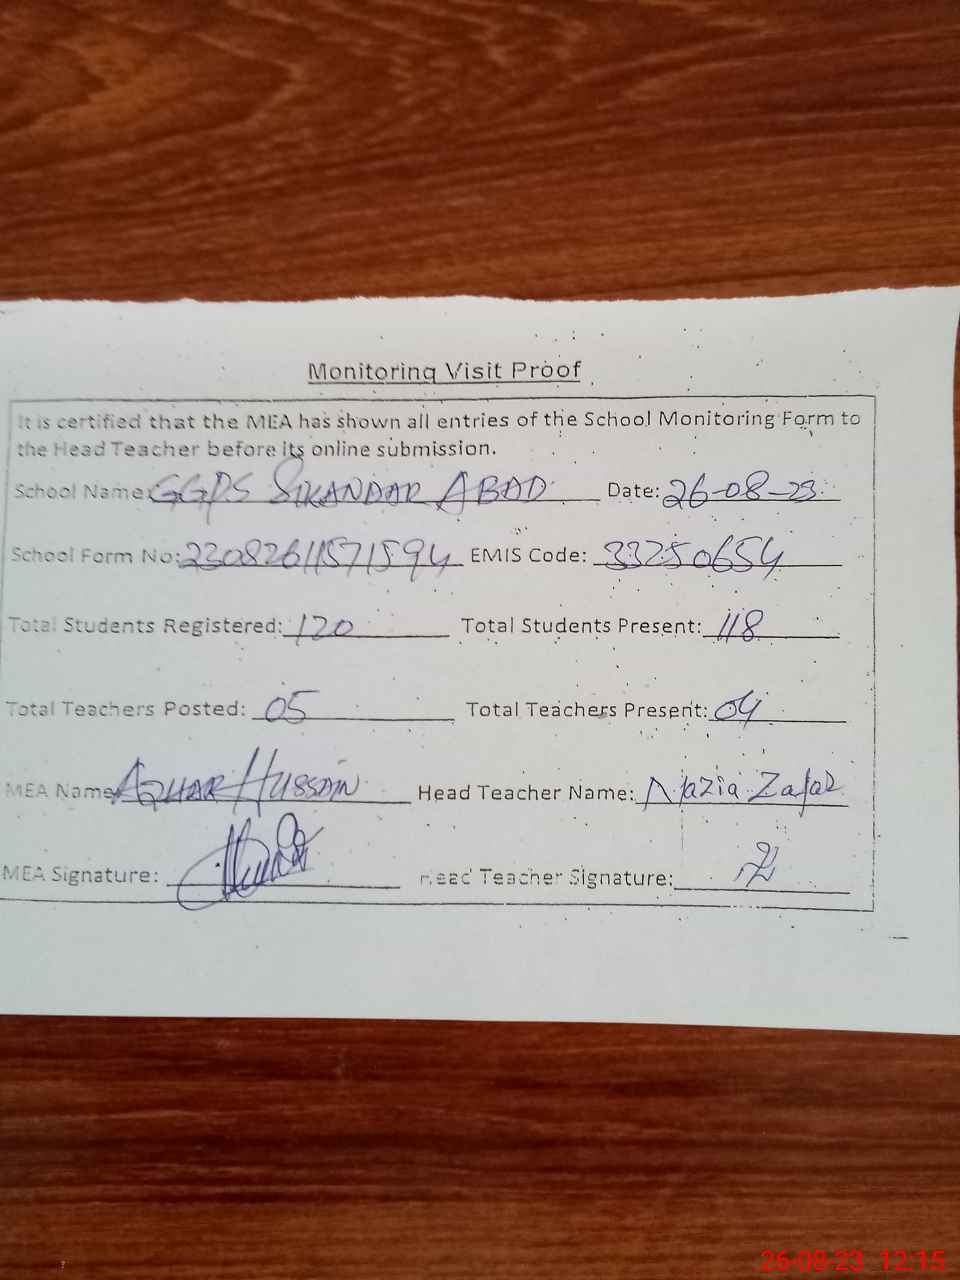 Monitoring Visit Proof
It is certified that the MEA has shown all entries of the School Monitoring Form to
the Head Teacher before its online submission.
School Name: GGPS SIKANDAR ABAD Date: 26-08-23
School Form No: 23082611571594 EMIS Code: 33250654
Total Students Registered: 120 Total Students Present: 118
Total Teachers Posted: 05 Total Teachers Present: 04
MEA Name AZHAR HUSSAIN Head Teacher Name: Nazia Zafar
MEA Signature: Head Teacher Signature:
26-08-23 12:15